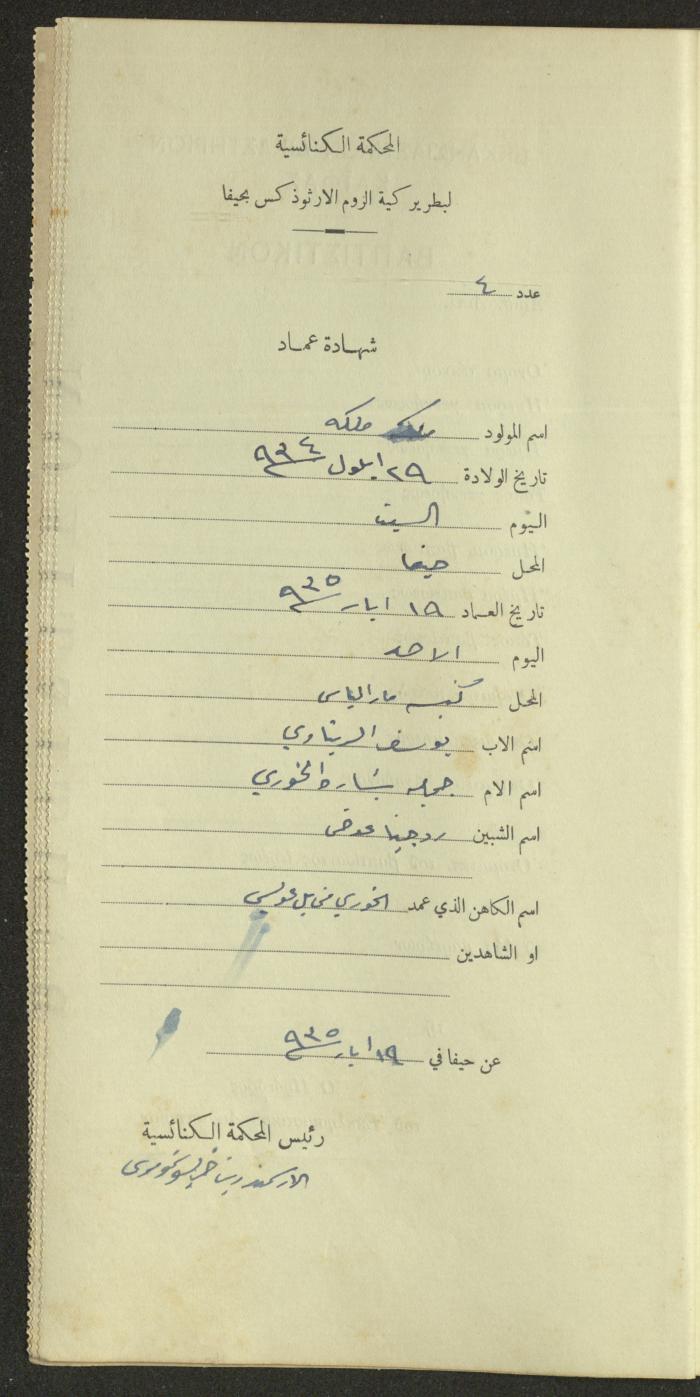 المحكمة الكنائسية
لبطريركية الروم الارثوذكس بحيفا
عدد ٤
شهادة عماد
اسم المولود ملكه
تاريخ الولادة ٢٩ ايلول ٩٣٤
اليوم السبت
المحل حيفا
تاريخ العماد ١٩ ايار ٩٣٥
اليوم الاحد
المحل كنيسه مار الياس
اسم الاب يوسف
اسم الام جميله بشاره الخوري
اسم الشبين روجينا عوض
اسم الكاهن الذي عمد الخوري
او الشاهدين
عن حيفا في ١٩ ايار ٩٣٥
رئيس المحكمة الكنائسية
الارشمندريت